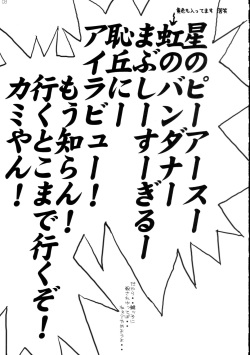 星のピーアースー
虹のバンダナー
まぶしーすーぎるー
恥丘にー
アイラビュー！
もう知らん！
行くとこまで行くぞ！
カミやん！